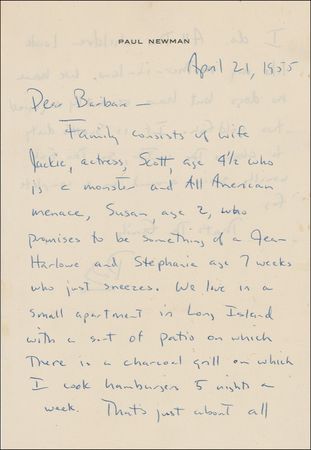 PAUL NEWMAN
April 21, 1955
Dear Barbara –
Family consists of wife
Jackie, actress, Scott, age 4½ who
is a monster and All American
menace, Susan, age 2, who
promises to be something of a Jean
Harlowe and Stephanie age 7 weeks
who just sneezes. We live in a
small apartment in Long Island
with a sort of patio on which
there is a charcoal grill on which
I cook hamburgers 5 nights a
week. That's just about all